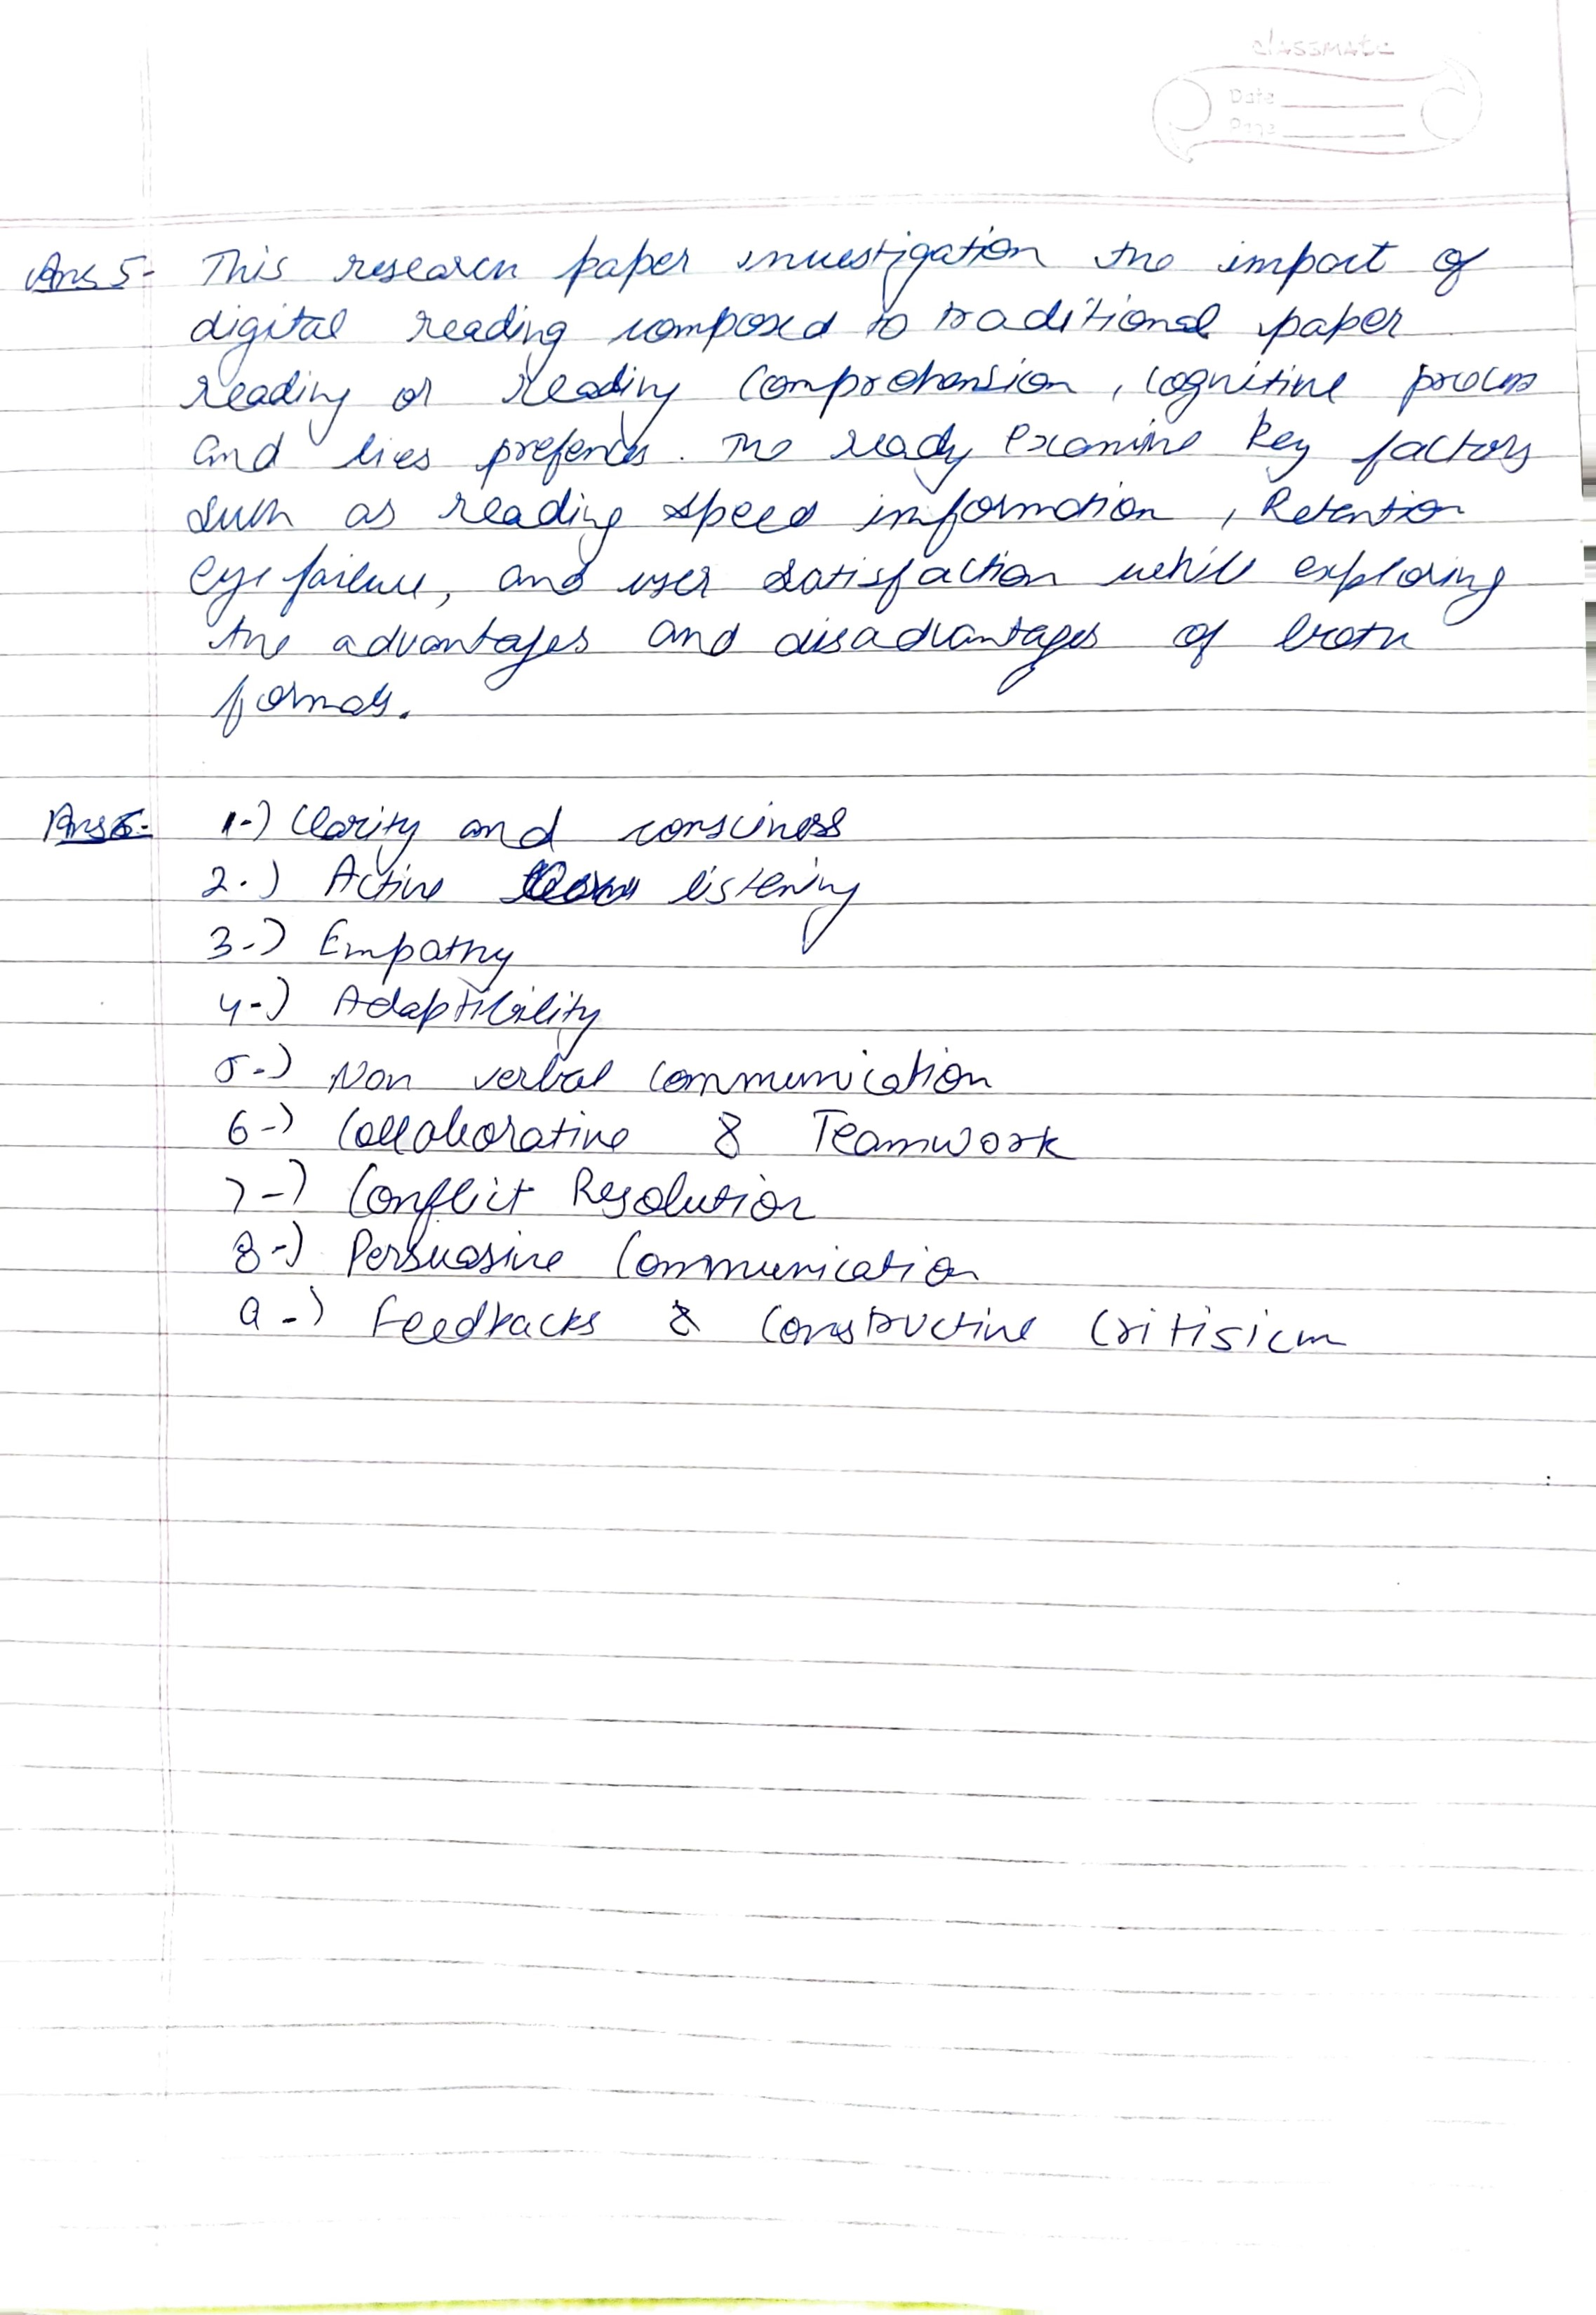 classmate
Date
Page
Ans 5- This research paper investigation the impact of
digital reading compared to traditional paper
reading or reading Comprehension, cognitive process
and lies prefences. The ready examine key factors
such as reading speed information, Retention
eye failure, and user satisfaction while exploring
the advantages and disadvantages of both
formats.
Ans 6- 1-) Clarity and consciness
2-) Active listening
3-) Empathy
4-) Adaptibility
5-) Non verbal communication
6-) Collaborative & Teamwork
7-) Conflict Resolution
8-) Persuasive Communication
9-) Feedbacks & Constructive Critisicm